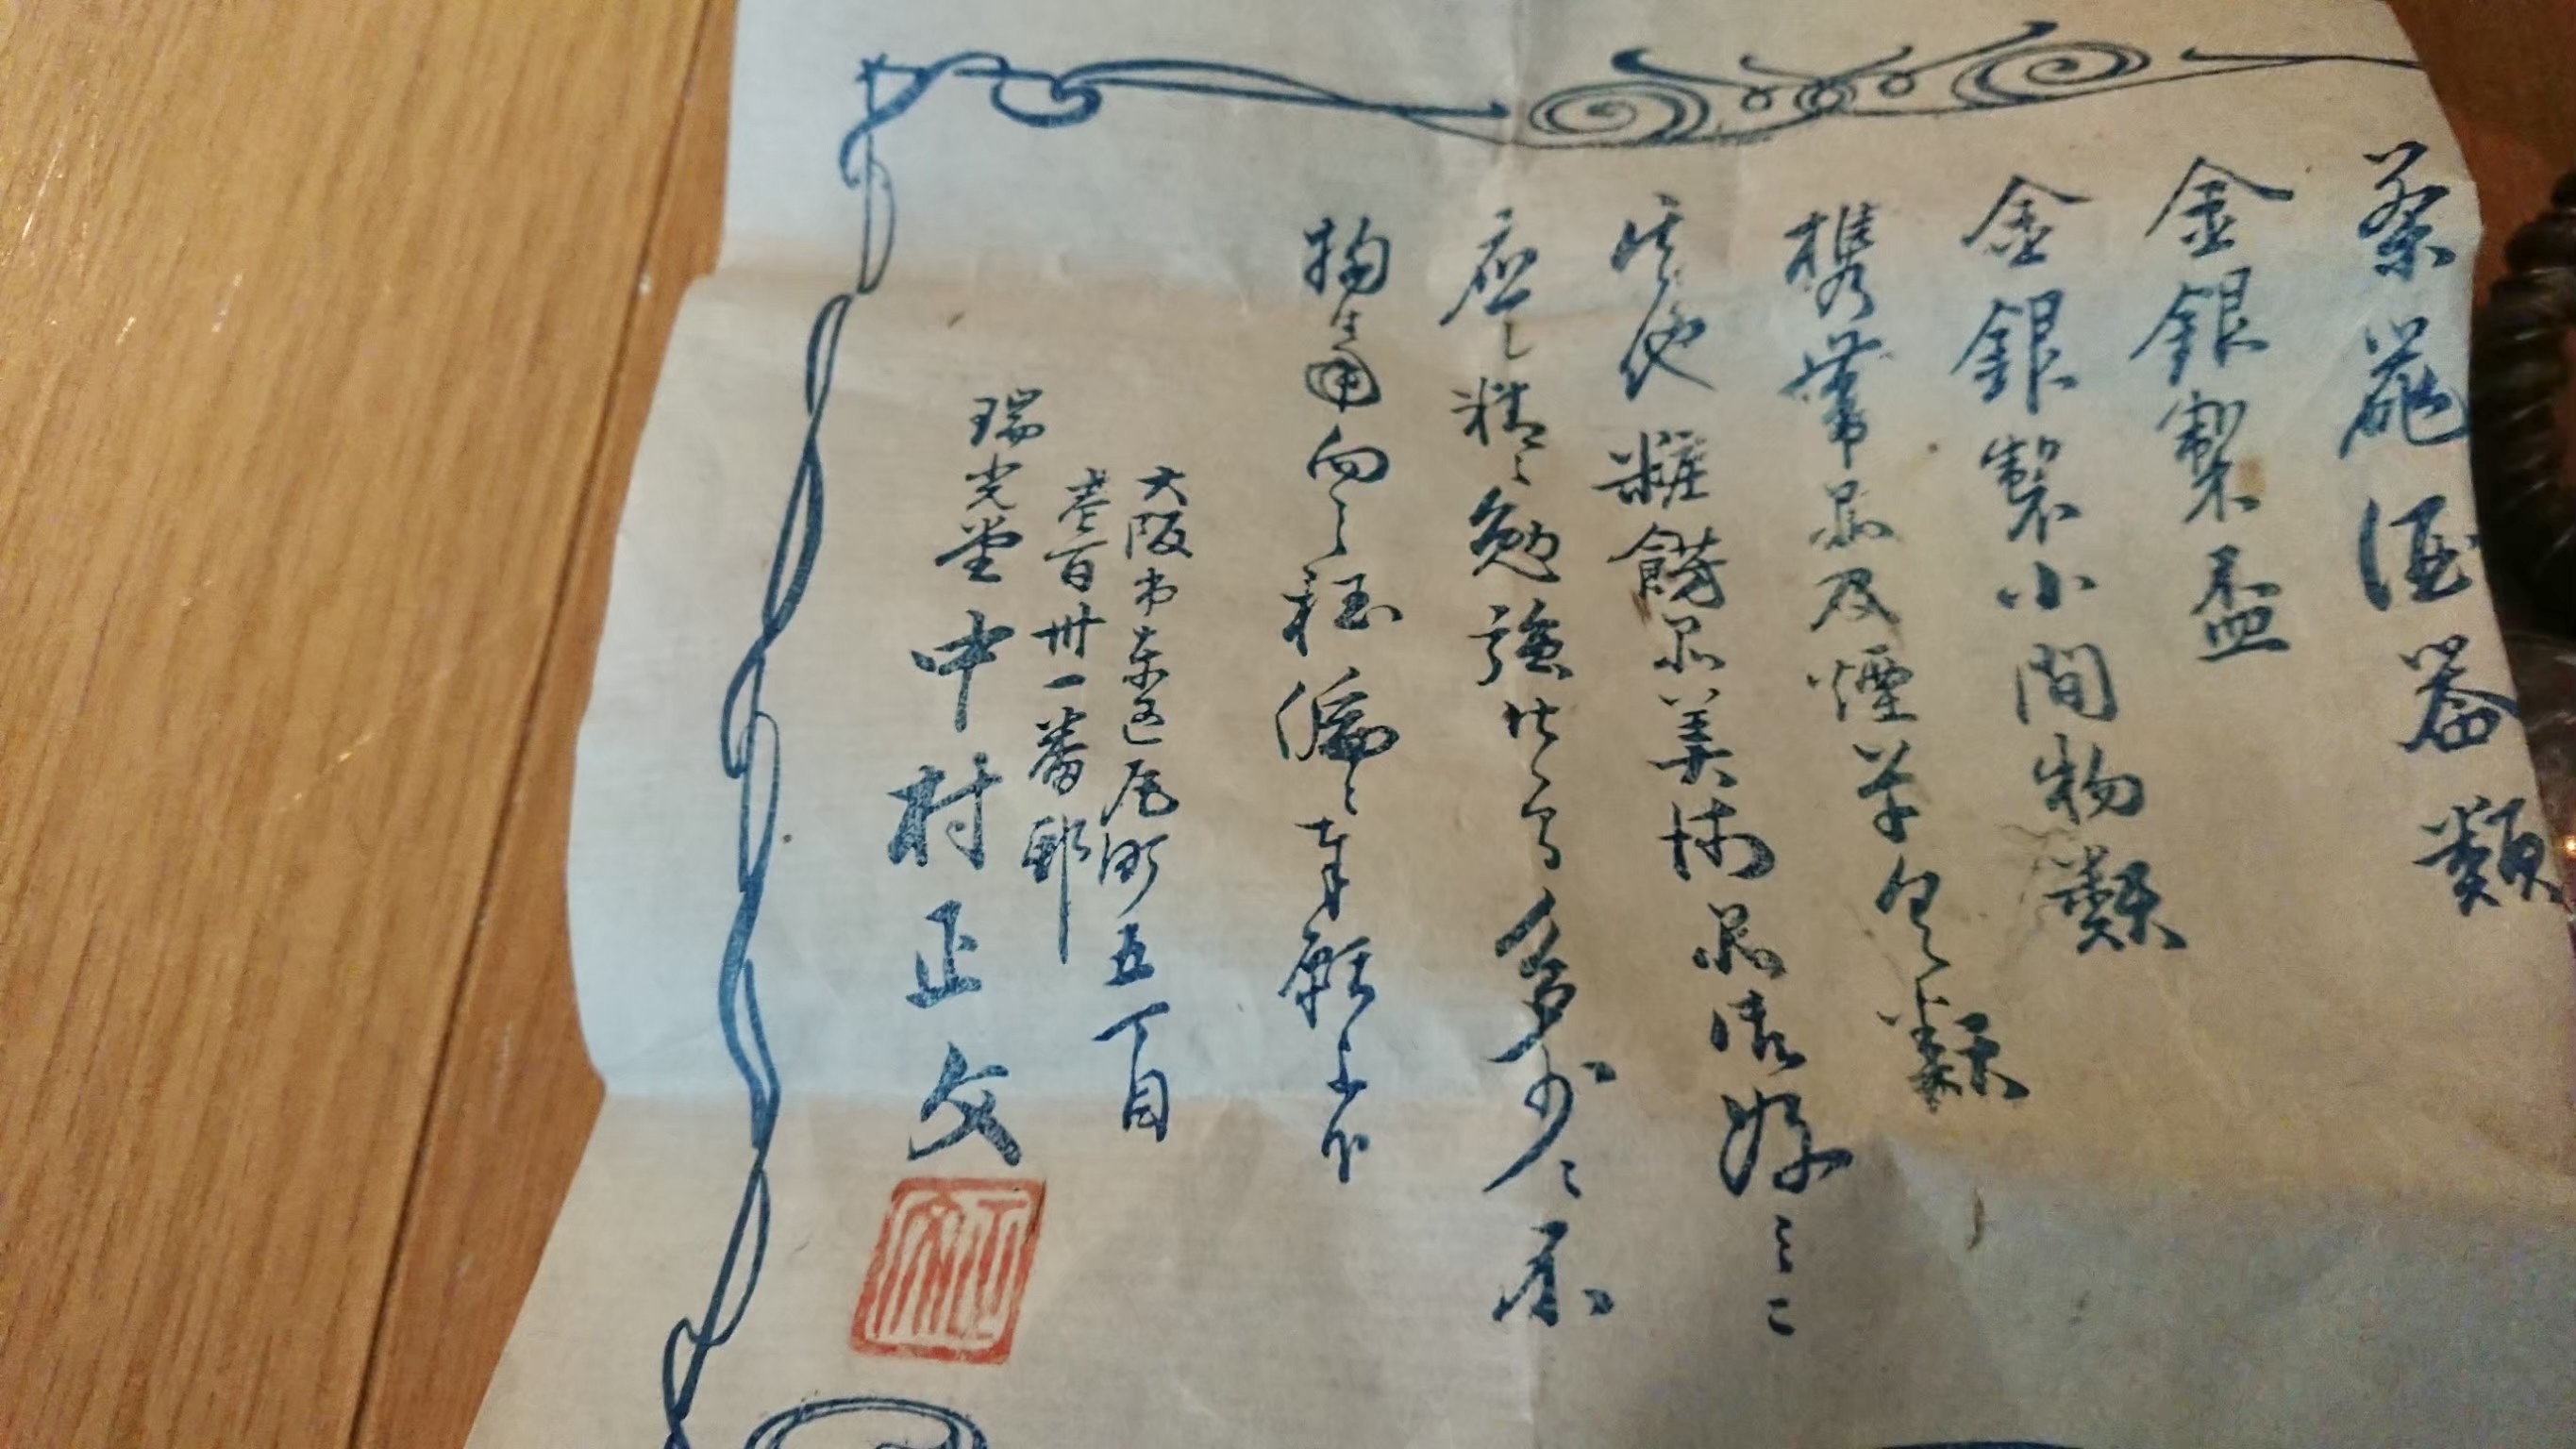 茶器酒器類
金銀製盃
金銀製小間物類
携帯品及煙草包類
其他粧飾品美術品御好ミニ
應し精々勉強仕る多少ニ不
拘御用向之程偏ニ奉願上候
大阪市東区瓦町五丁目
壱百卅一番邸
瑞光堂 中村正文